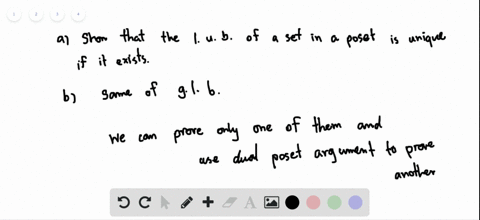 a) Show that the l.u.b. of a set in a poset is unique
if it exists.
b) Same of g.l.b.
We can prove only one of them and
use dual poset argument to prove
another